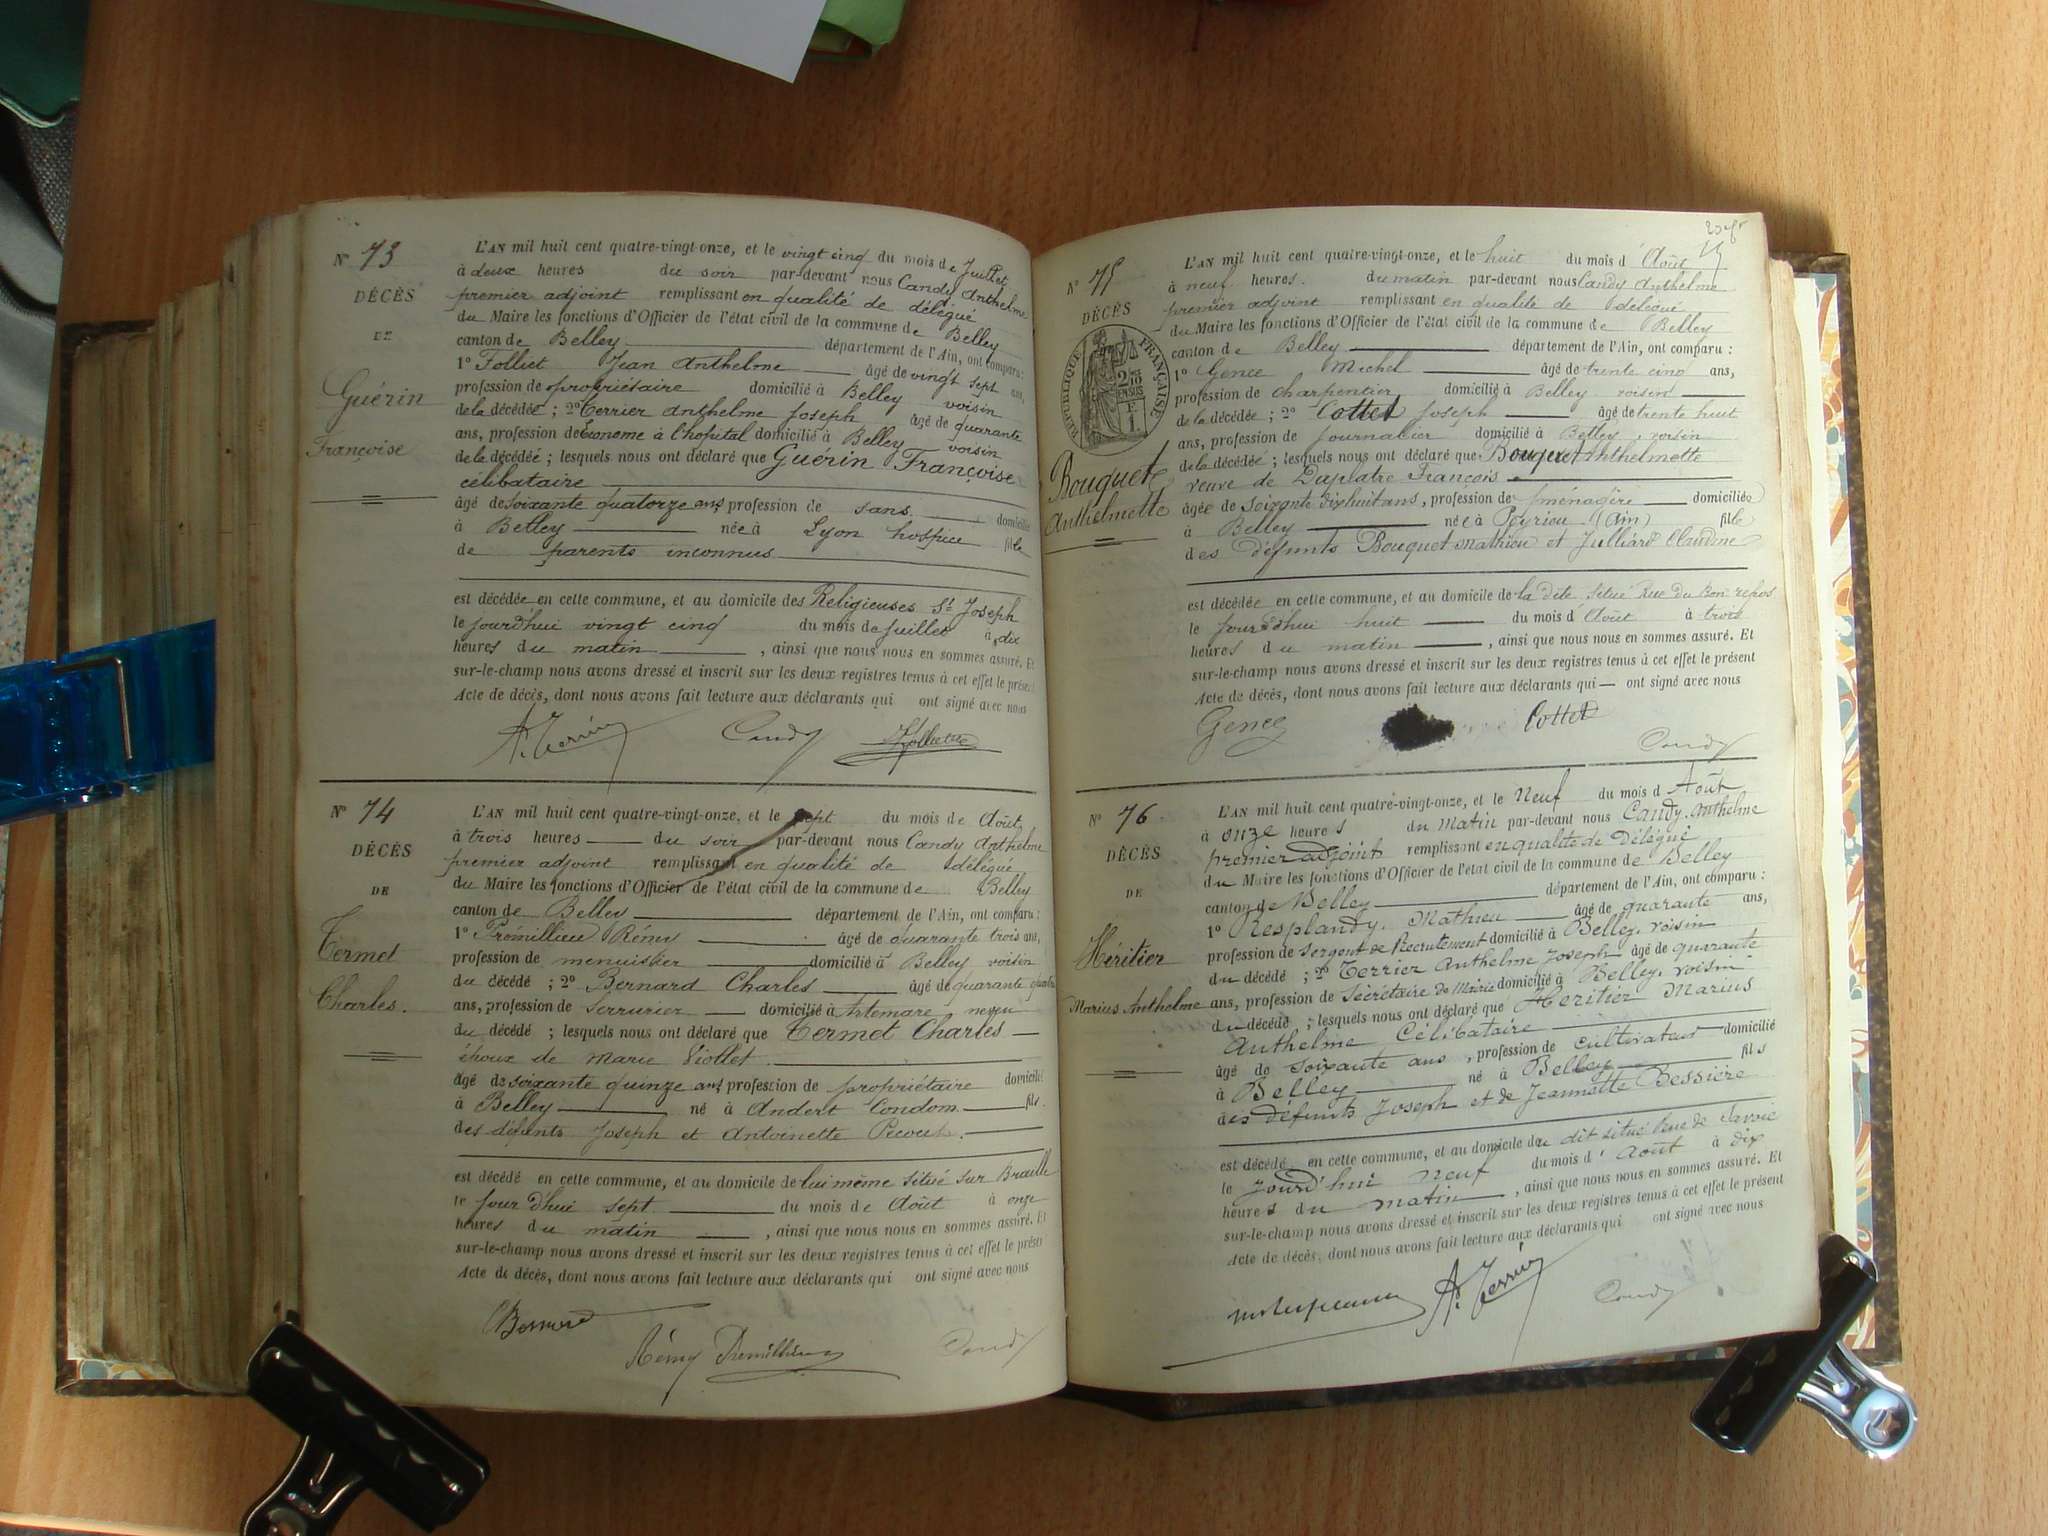 N° 73
DÉCÈS
DE
Guérin
Françoise
L'AN mil huit cent quatre-vingt-onze, et le vingt cinq du mois de Juillet
à deux heures du soir par-devant nous Candy Anthelme
premier adjoint remplissant en qualité de délégué
du Maire les fonctions d'Officier de l'état civil de la commune de Belley
canton de Belley département de l'Ain, ont comparu :
1° Folliet Jean Anthelme âgé de vingt sept ans,
profession de propriétaire domicilié à Belley voisin
de la décédée ; 2° Terrier Anthelme Joseph âgé de quarante
ans, profession de Econome à l'hopital domicilié à Belley voisin
de la décédée ; lesquels nous ont déclaré que Guérin Françoise
célibataire
âgé de soixante quatorze ans profession de sans domicilié
à Belley née à Lyon hospice fille
de parents inconnus
est décédée en cette commune, et au domicile des Religieuses St Joseph
le jourdhui vingt cinq du mois de Juillet à dix
heures du matin , ainsi que nous nous en sommes assuré. Et
sur-le-champ nous avons dressé et inscrit sur les deux registres tenus à cet effet le présent
Acte de décès, dont nous avons fait lecture aux déclarants qui ont signé avec nous
A. Terrier Candy
N° 74
DÉCÈS
DE
Termet
Charles.
L'AN mil huit cent quatre-vingt-onze, et le sept du mois de Août
à trois heures du soir par-devant nous Candy Anthelme
premier adjoint remplissant en qualité de délégué
du Maire les fonctions d'Officier de l'état civil de la commune de Belley
canton de Belley département de l'Ain, ont comparu :
1° Prémillieu Rémy âgé de quarante trois ans,
profession de menuisier domicilié à Belley voisin
du décédé ; 2° Bernard Charles âgé de quarante quatre
ans, profession de Serrurier domicilié à Artemare neveu
du décédé ; lesquels nous ont déclaré que Termet Charles
époux de Marie Viollet
âgé de soixante quinze ans profession de propriétaire domicilié
à Belley né à Andert Condom fils
des défunts Joseph et Antoinette Pecout.
est décédé en cette commune, et au domicile de lui même situé sur Braille
le jour dhui sept du mois de Août à onze
heures du matin , ainsi que nous nous en sommes assuré. Et
sur-le-champ nous avons dressé et inscrit sur les deux registres tenus à cet effet le présent
Acte de décès, dont nous avons fait lecture aux déclarants qui ont signé avec nous
CBernard
Rémy Premillieu Candy
N° 75
DÉCÈS
RÉPUBLIQUE FRANÇAISE
Bouquet
Anthelmette
L'AN mil huit cent quatre-vingt-onze, et le huit du mois d'Août
à neuf heures du matin par-devant nous Candy Anthelme
premier adjoint remplissant en qualité de délégué
du Maire les fonctions d'Officier de l'état civil de la commune de Belley
canton de Belley département de l'Ain, ont comparu :
1° Gence Michel âgé de trente cinq ans,
profession de charpentier domicilié à Belley voisin
de la décédée ; 2° Cottet Joseph âgé de trente huit
ans, profession de journalier domicilié à Belley, voisin
de la décédée ; lesquels nous ont déclaré que Bouquet Anthelmette
veuve de Duplatre François
âgée de soixante dix huit ans, profession de ménagère domiciliée
à Belley née à Peyrieu (Ain) fille
des défunts Bouquet Mathieu et Julliard Claudine
est décédée en cette commune, et au domicile de la dite situé Rue du Bon repos
le jourdhui huit du mois d'Août à trois
heures du matin , ainsi que nous nous en sommes assuré. Et
sur-le-champ nous avons dressé et inscrit sur les deux registres tenus à cet effet le présent
Acte de décès, dont nous avons fait lecture aux déclarants qui — ont signé avec nous
Gence Cottet
Candy
N° 76
DÉCÈS
DE
Héritier
Marius Anthelme
L'AN mil huit cent quatre-vingt-onze, et le Neuf du mois d'Août
à onze heures du matin par-devant nous Candy Anthelme
premier adjoint remplissant en qualité de Délégué
du Maire les fonctions d'Officier de l'état civil de la commune de Belley
canton de Belley département de l'Ain, ont comparu :
1° Resplandy. Mathieu âgé de quarante ans,
profession de Sergent de Recrutement domicilié à Belley, voisin
du décédé ; 2° Terrier Anthelme Joseph âgé de quarante
ans, profession de Sécrétaire de Mairie domicilié à Belley. voisin
du décédé ; lesquels nous ont déclaré que Héritier Marius
Anthelme Célibataire
âgé de soixante ans , profession de cultivateur domicilié
à Belley né à Belley fils
des défunts Joseph et de Jeannette Bessière
est décédé en cette commune, et au domicile du dit situé Rue de Savoie
le jourd'hui Neuf du mois d'Août à dix
heures du matin , ainsi que nous nous en sommes assuré. Et
sur-le-champ nous avons dressé et inscrit sur les deux registres tenus à cet effet le présent
Acte de décès, dont nous avons fait lecture aux déclarants qui ont signé avec nous
A. Terrier Candy